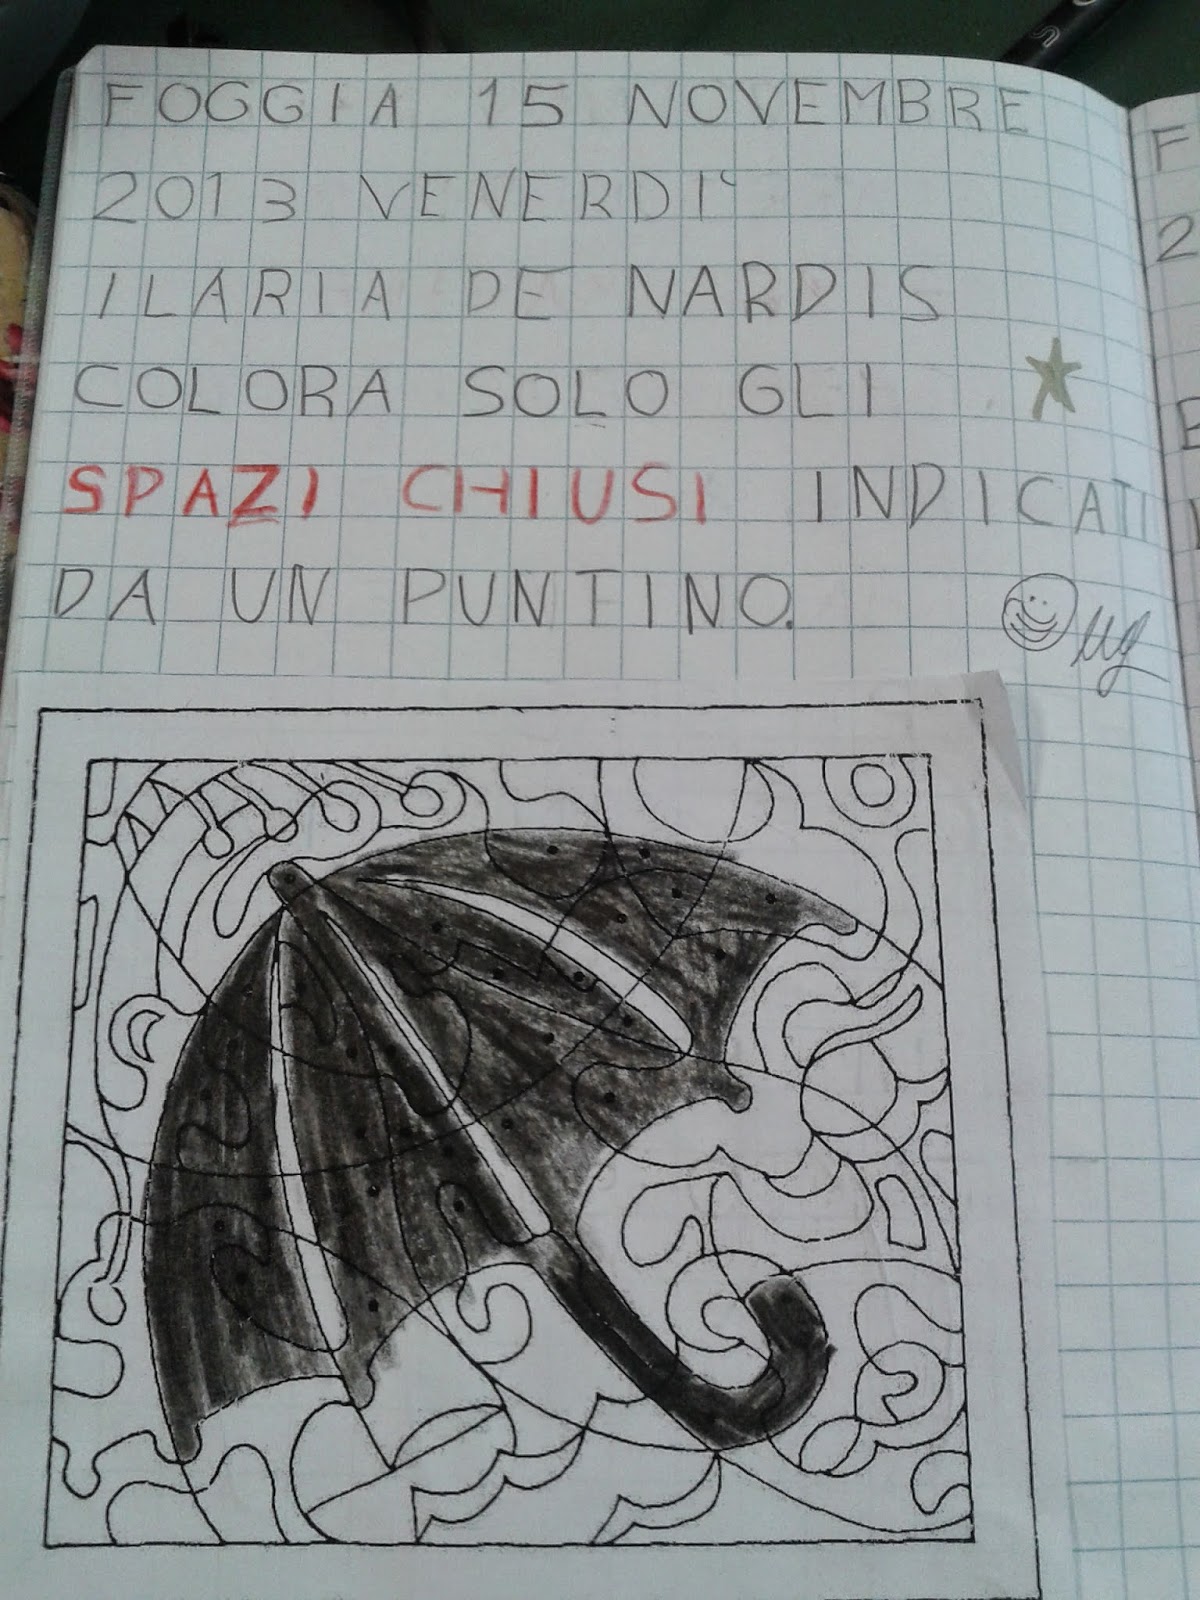 FOGGIA 15 NOVEMBRE
2013 VENERDI'
ILARIA DE NARDIS
COLORA SOLO GLI
SPAZI CHIUSI INDICATI
DA UN PUNTINO.
F
2